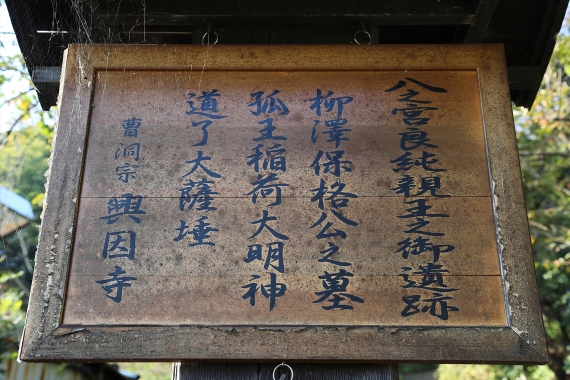 八之宮良純親王之御遺跡
柳澤保格公之墓
孤王稲荷大明神
道了大薩埵
曹洞宗 興因寺